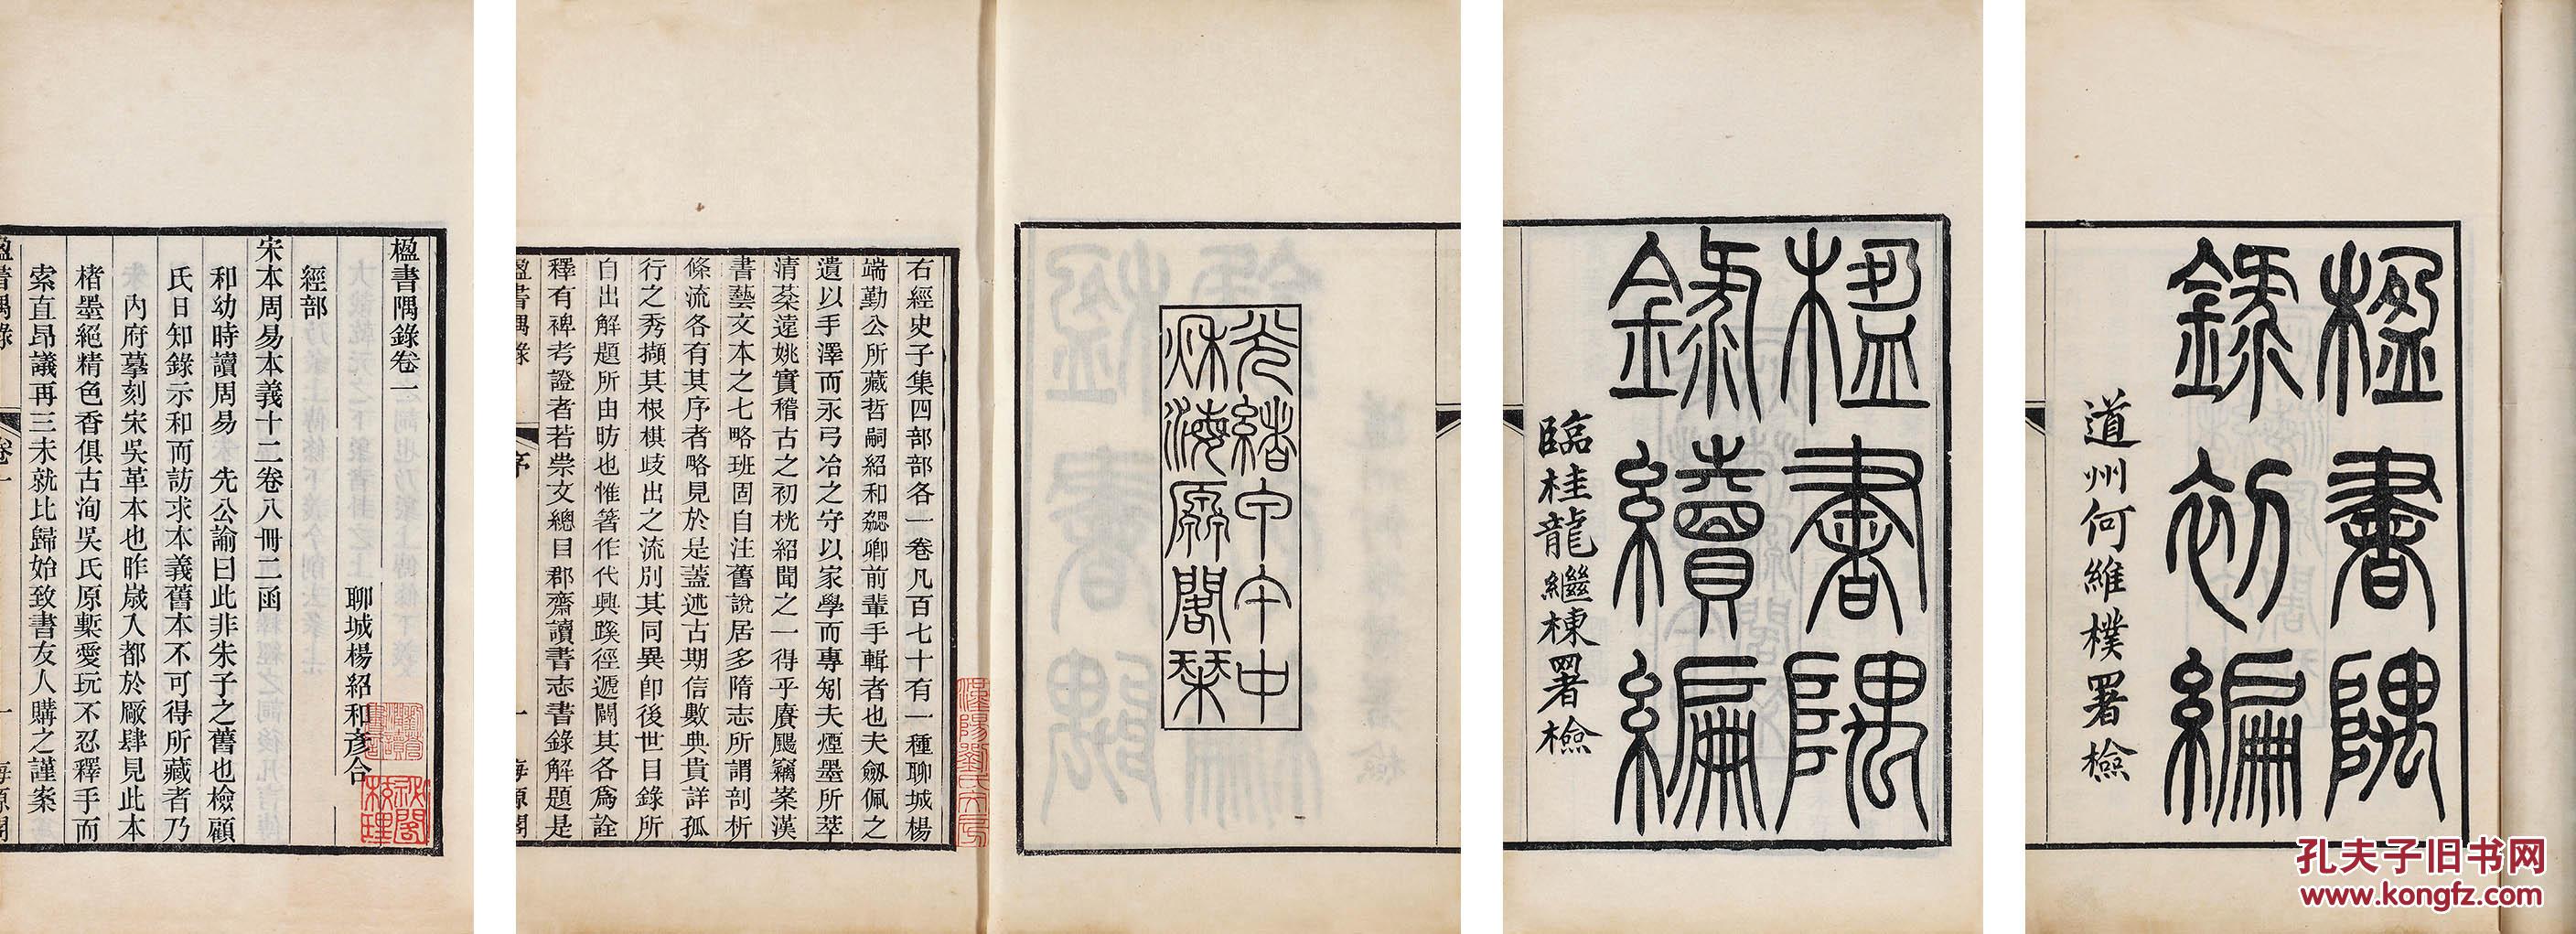 楹書隅
錄初編
道州何維樸署檢
楹書隅
錄續編
臨桂龍繼棟署檢
光緒甲午中
秌海原閣栞
右經史子集四部部各一卷凡百七十有一種聊城楊
端勤公所藏哲嗣紹和勰卿前輩手輯者也夫劔佩之
遺以手澤而永弓冶之守以家學而專矧夫煙墨所萃
清棻遠姚實稽古之初桄紹聞之一得乎賡颺竊案漢
書藝文本之七略班固自注舊說居多隋志所謂剖析
條流各有其序者略見於是蓋述古期信數典貴詳孤
行之秀擷其根棋歧出之流別其同異卽後世目錄所
自出解題所由昉也惟箸作代興蹊徑遞闢其各爲詮
釋有裨考證者若崇文總目郡齋讀書志書錄解題是
楹書隅錄
序
一
海原閣
楹書隅錄卷一
聊城楊紹和彥合
經部
宋本周易本義十二卷八冊二函
和幼時讀周易 先公諭曰此非朱子之舊也檢顧
氏日知錄示和而訪求本義舊本不可得所藏者乃
內府摹刻宋吳革本也昨歲入都於厰肆見此本
楮墨絕精色香俱古洵吳氏原槧愛玩不忍釋手而
索直昂議再三未就比歸始致書友人購之謹案
楹書隅錄
卷一
一
海原閣
漢陽劉氏文房
孔夫子旧书网
www.kongfz.com